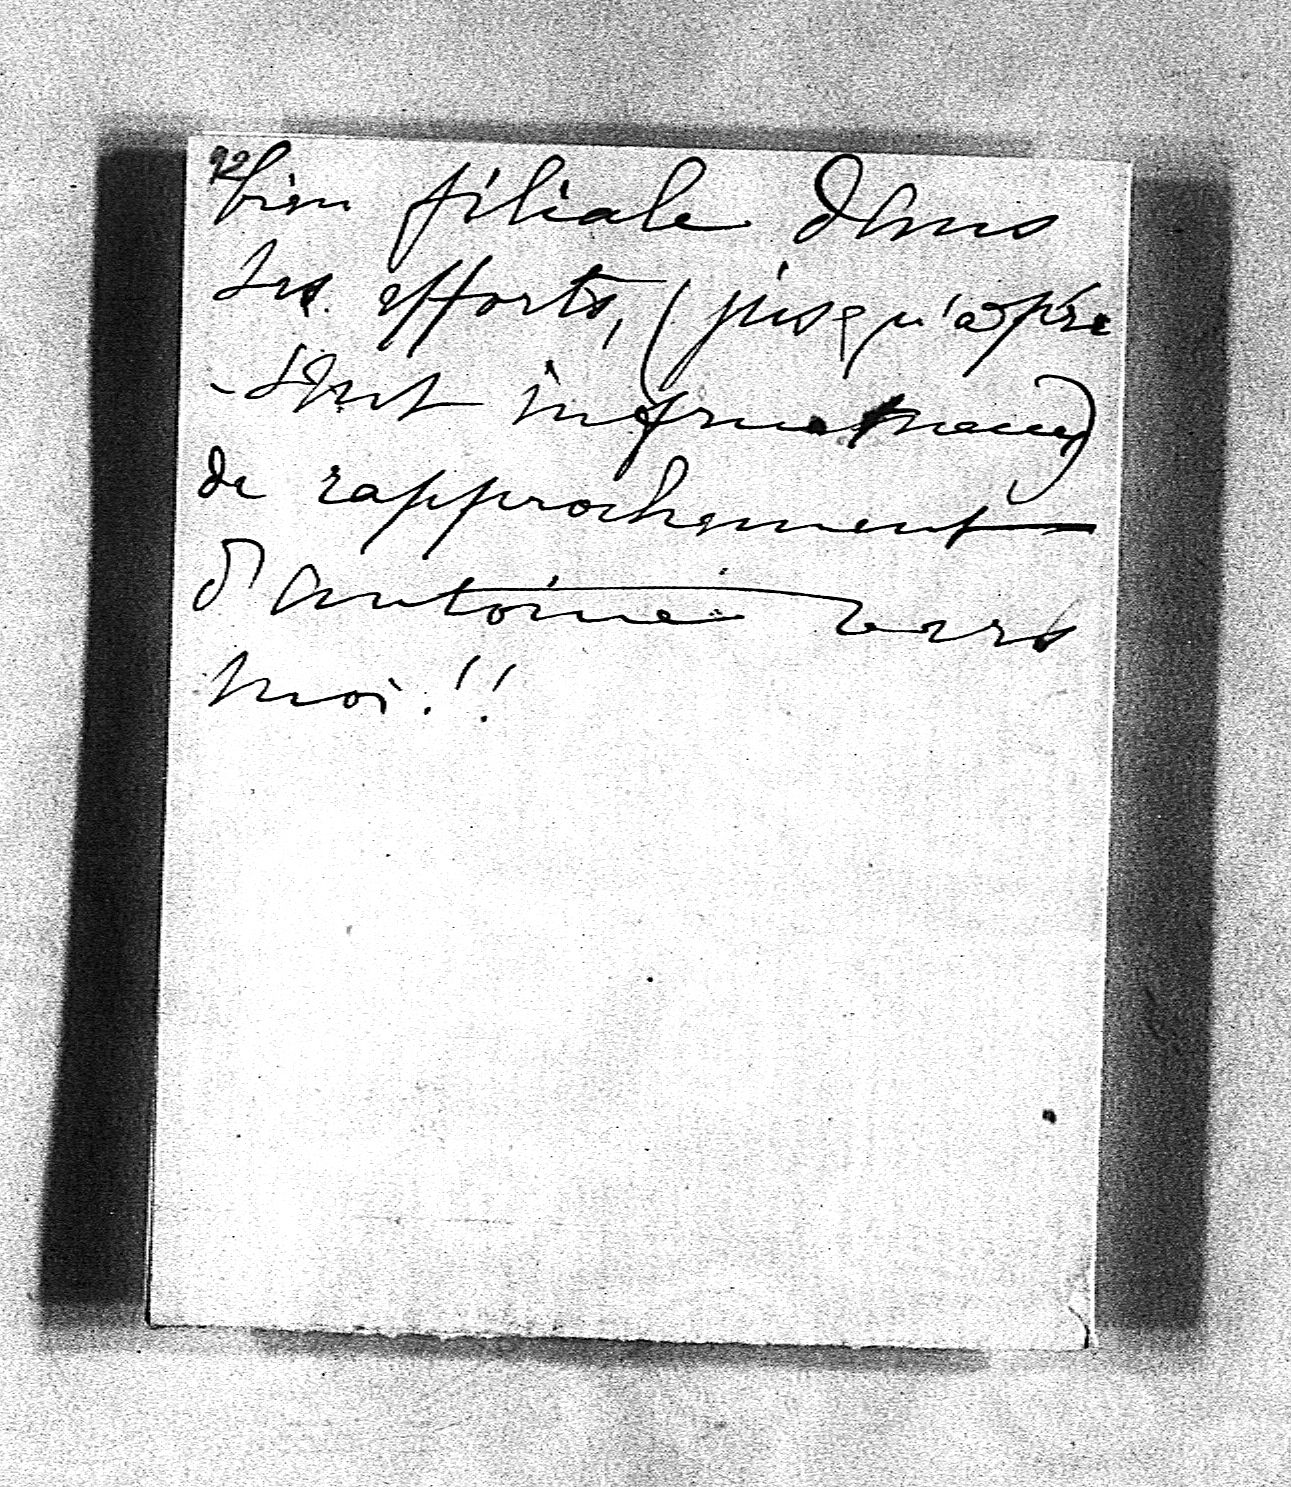 92
bien filiale dans
ses efforts, (jusqu'à pré
-sent infructueux)
de rapprochement
d'Antoine vers
moi.!!